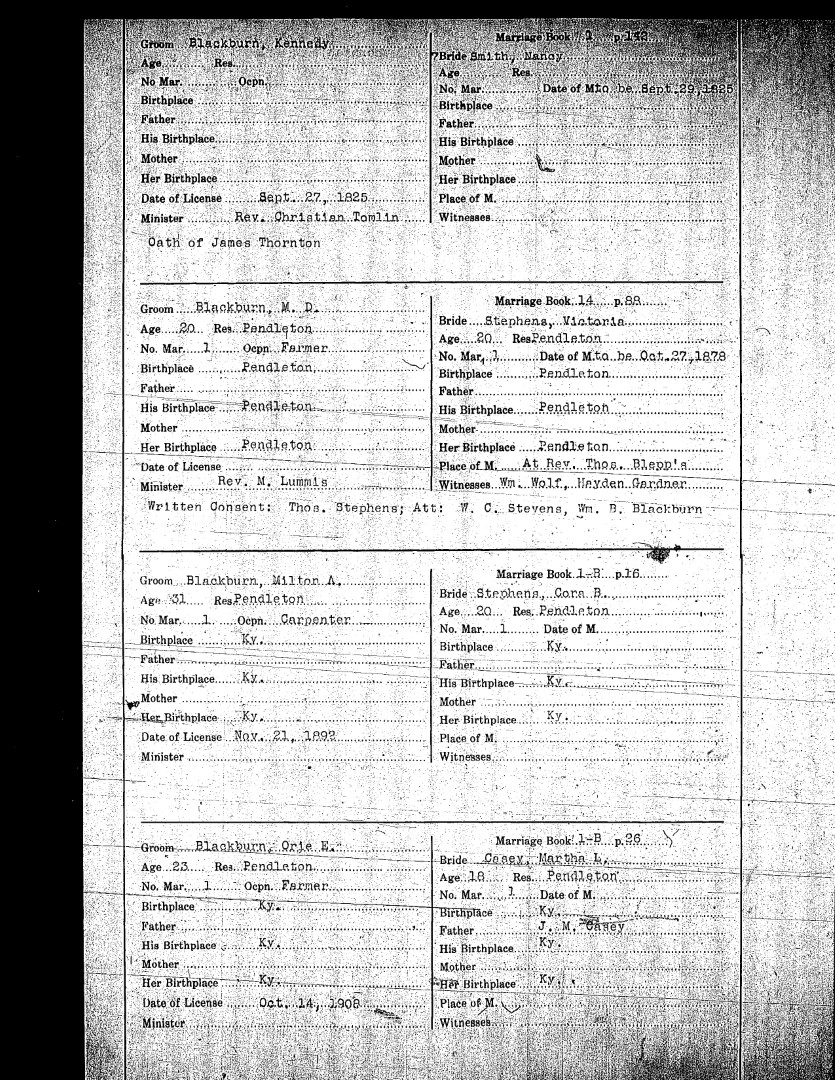 Groom Blackburn, Kennedy
Age Res.
No Mar. Ocpn.
Birthplace
Father
His Birthplace
Mother
Her Birthplace
Date of License Sept. 27, 1825
Minister Rev. Christian Tomlin
Oath of James Thornton
Marriage Book 1 p.142
Bride Smith, Nancy
Age Res.
No. Mar. Date of M. to be Sept. 29, 1825
Birthplace
Father
His Birthplace
Mother
Her Birthplace
Place of M.
Witnesses
Groom Blackburn, M. D.
Age 20 Res. Pendleton
No. Mar. 1 Ocpn. Farmer
Birthplace Pendleton
Father
His Birthplace Pendleton
Mother
Her Birthplace Pendleton
Date of License
Minister Rev. M. Lummis
Marriage Book 14 p.88
Bride Stephens, Victoria
Age 20 Res. Pendleton
No. Mar. 1 Date of M. to be Oct. 27, 1878
Birthplace Pendleton
Father
His Birthplace Pendleton
Mother
Her Birthplace Pendleton
Place of M. At Rev. Thos. Blepp's
Witnesses Wm. Wolf, Hayden Gardner
Written Consent: Thos. Stephens; Att: W. C. Stevens, Wm. B. Blackburn
Groom Blackburn, Milton A.
Age 31 Res. Pendleton
No Mar. 1 Ocpn. Carpenter
Birthplace Ky.
Father
His Birthplace Ky.
Mother
Her Birthplace Ky.
Date of License Nov. 21, 1892
Minister
Marriage Book 1-B p.16
Bride Stephens, Cora B.
Age 20 Res. Pendleton
No. Mar. 1 Date of M.
Birthplace Ky.
Father
His Birthplace Ky.
Mother
Her Birthplace Ky.
Place of M.
Witnesses
Groom Blackburn, Orie E.
Age 23 Res. Pendleton
No. Mar. 1 Ocpn. Farmer
Birthplace Ky.
Father
His Birthplace Ky.
Mother
Her Birthplace Ky.
Date of License Oct. 14, 1908
Minister
Marriage Book 1-B p.26
Bride Casey, Martha L.
Age 18 Res. Pendleton
No. Mar. 1 Date of M.
Birthplace Ky.
Father J. M. Casey
His Birthplace Ky.
Mother
Her Birthplace Ky.
Place of M.
Witnesses